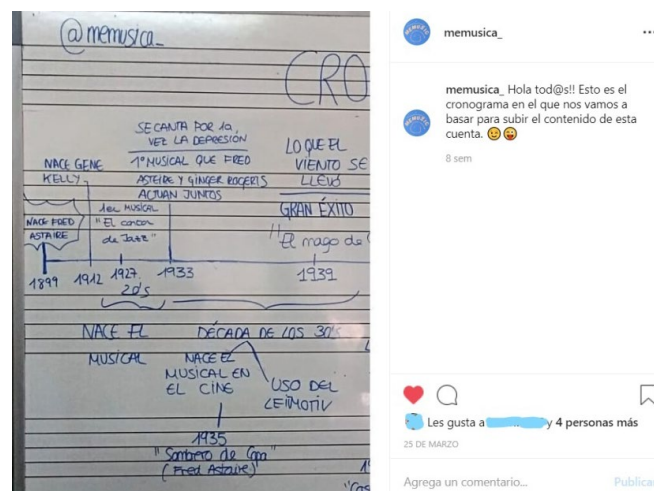 @memusica_
CRO
SE CANTA POR 1a
VEZ LA DEPRESIÓN
1º MUSICAL QUE FRED
ASTEIRE Y GINGER ROGERTS
ACTUAN JUNTOS
LO QUE EL
VIENTO SE
LLEVÓ
GRAN ÉXITO
"El mago de
NACE GENE
KELLY
1er MUSICAL
"El cantor
de Jazz"
NACE FRED
ASTAIRE
1899
1912
1927
1933
1939
20's
NACE EL
MUSICAL
DÉCADA DE LOS 30's
NACE EL
MUSICAL EN
EL CINE
USO DEL
LEITMOTIV
1935
"Sombrero de Copa"
(Fred Astaire)
memusica_
memusica_ Hola tod@s!! Esto es el
cronograma en el que nos vamos a
basar para subir el contenido de esta
cuenta. 😉😜
8 sem
Les gusta a y 4 personas más
25 DE MARZO
Agrega un comentario...
Publicar